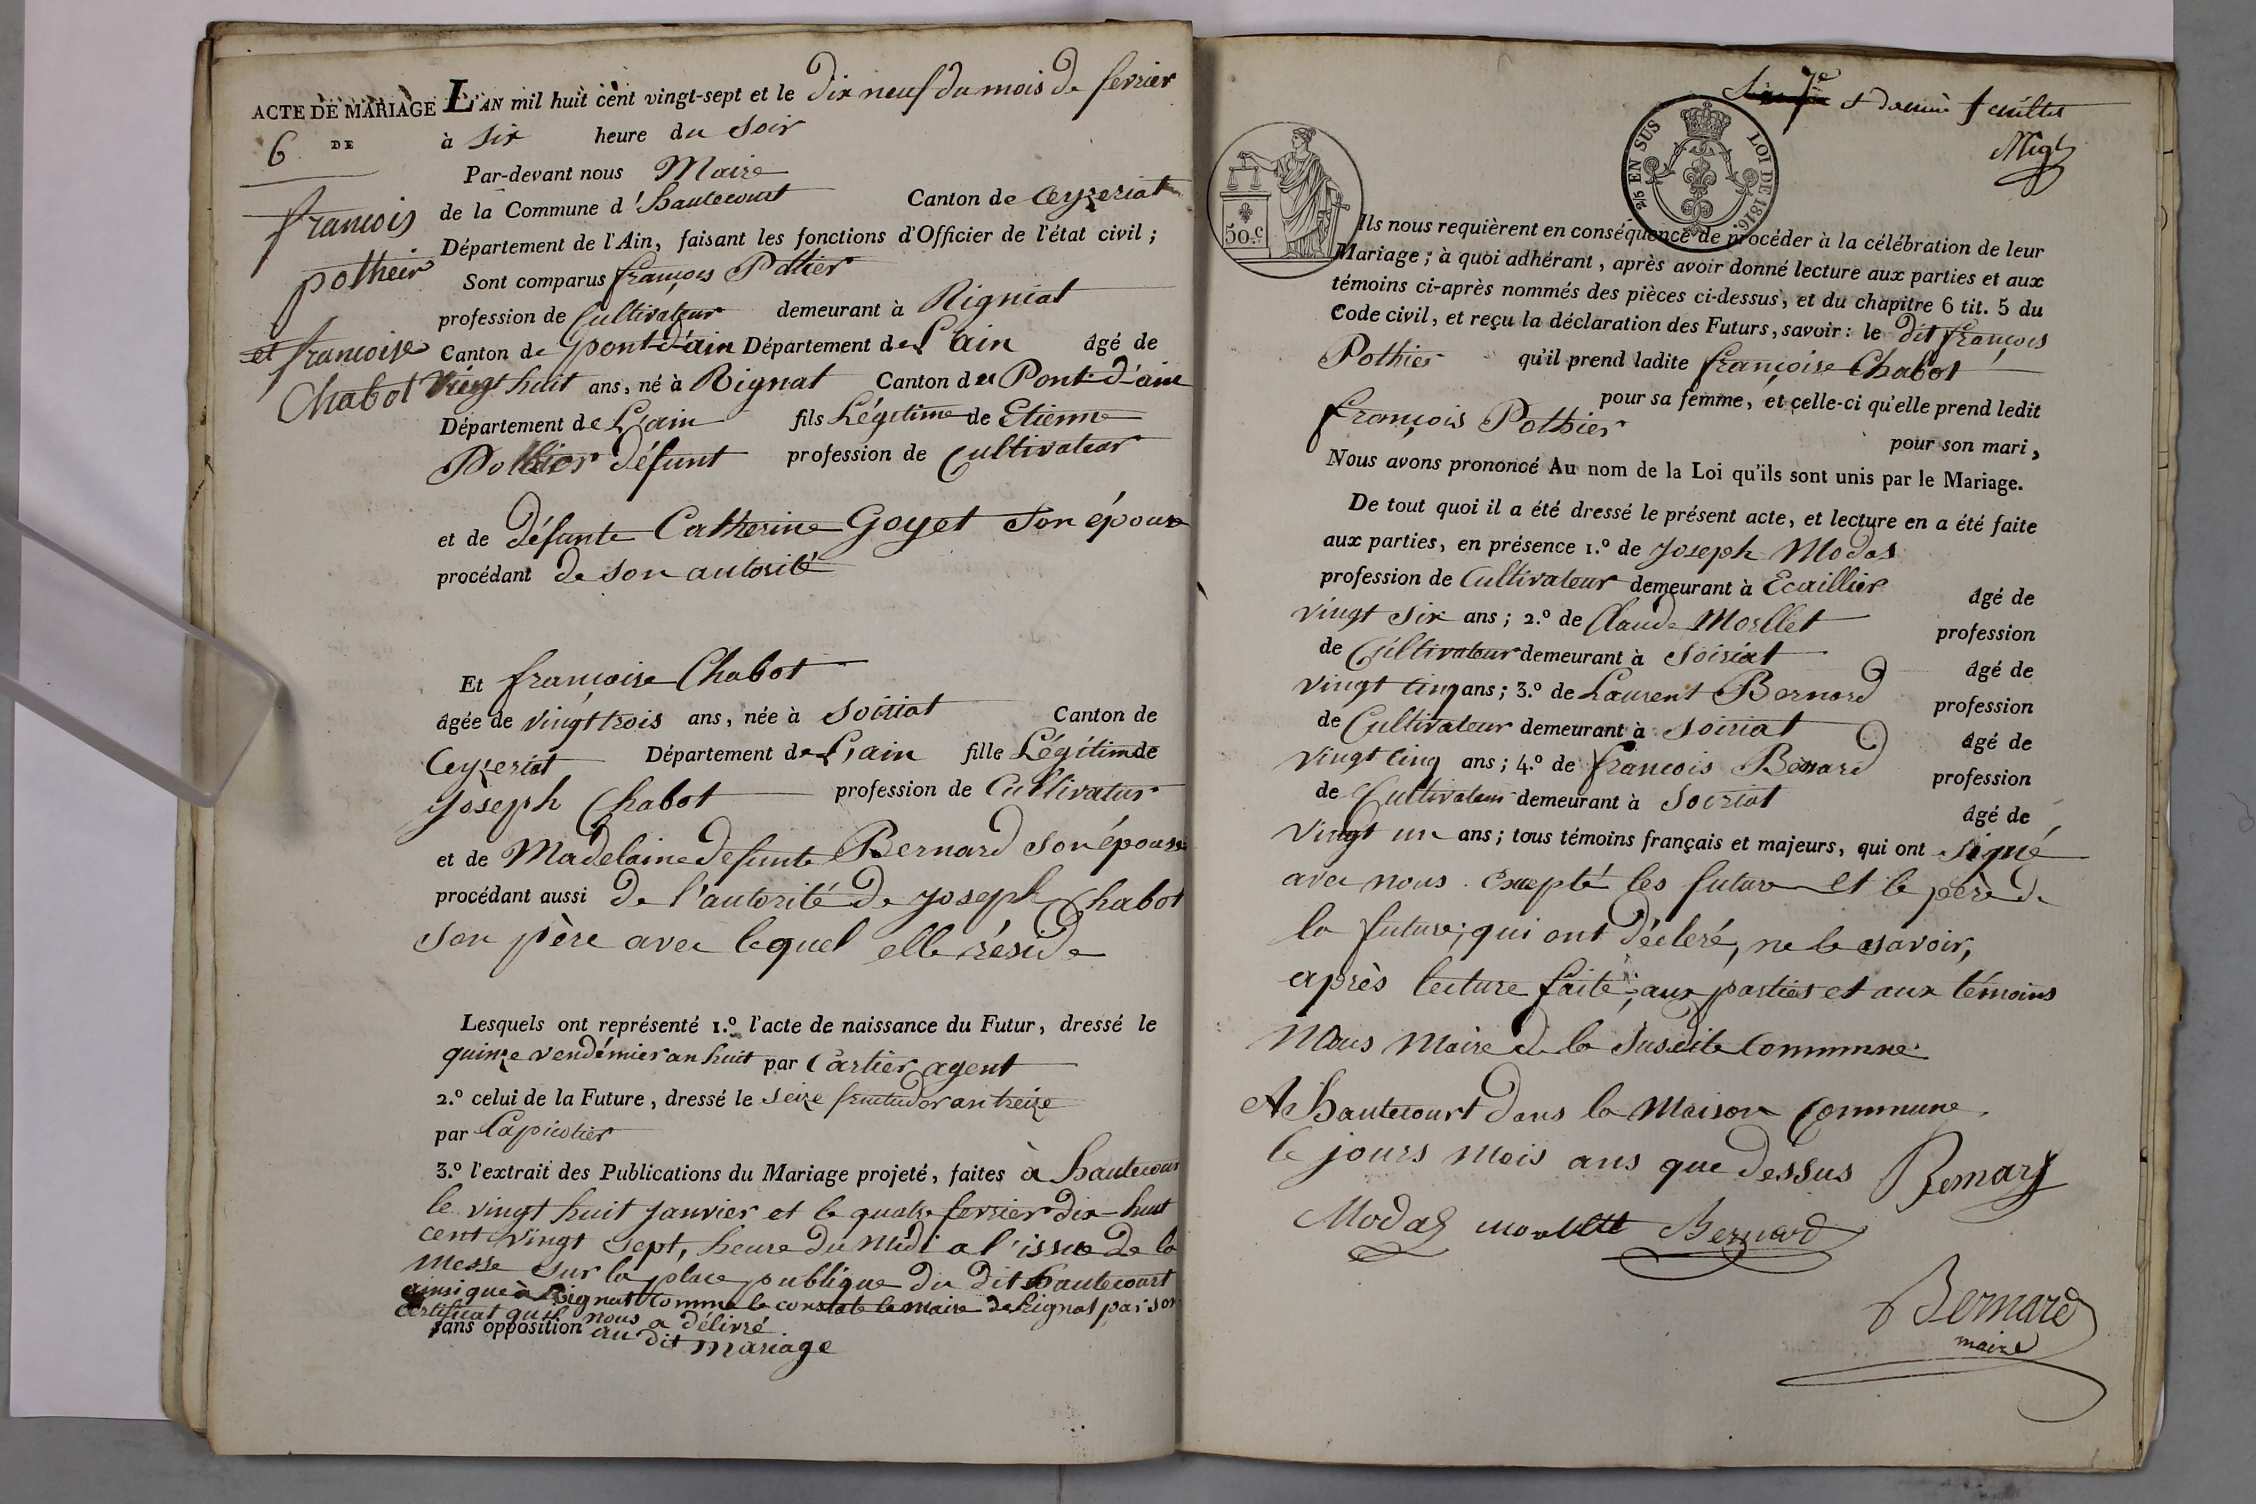 ACTE DE MARIAGE
6 DE
françois
potheir
et françoise
Chabot
L'AN mil huit cent vingt-sept et le dix neuf du mois de fevrier
à six heure du soir
Par-devant nous Maire
de la Commune d'hautecourt Canton de Ceyzeriat
Département de l'Ain, faisant les fonctions d'Officier de l'état civil ;
Sont comparus françois Pothier
profession de Cultivateur demeurant à Rigniat
Canton de pont d'ain Département de L'ain âgé de
vingt huit ans, né à Rignat Canton de Pont-d'ain
Département de L'ain fils Légitime de Etienne
Pothier défunt profession de Cultivateur
et de défunte Catherine Goyet son épouse
procédant de son autorité
Et françoise Chabot
âgée de vingt trois ans, née à Soiriat Canton de
Ceyzeriat Département de L'ain fille Légitime de
joseph Chabot profession de Cultivatur
et de Madelaine defunte Bernard son épouse
procédant aussi de l'autorité de joseph Chabot
son père avec lequel elle réside
Lesquels ont représenté 1.º l'acte de naissance du Futur, dressé le
quinze vendémier an huit par Cartier agent
2.º celui de la Future, dressé le seize fructudor an treize
par Lapicotier
3.º l'extrait des Publications du Mariage projeté, faites à hautecour
le vingt huit janvier et le quatre fevrier dix-huit
cent vingt sept, heure du Midi a l'issue de la
Messe sur la place publique du dit hautecourt
ainsi que à Rignat comme le constate le maire de Rignat par son
certificat qu'il nous a délivré
sans opposition au dit mariage
Ils nous requièrent en conséquence de procéder à la célébration de leur
Mariage ; à quoi adhérant, après avoir donné lecture aux parties et aux
témoins ci-après nommés des pièces ci-dessus, et du chapitre 6 tit. 5 du
Code civil, et reçu la déclaration des Futurs, savoir : le dit françois
Pothier qu'il prend ladite françoise Chabot
pour sa femme, et celle-ci qu'elle prend ledit
françois Pothier pour son mari,
Nous avons prononcé Au nom de la Loi qu'ils sont unis par le Mariage.
De tout quoi il a été dressé le présent acte, et lecture en a été faite
aux parties, en présence 1.º de joseph Modas
profession de Cultivateur demeurant à Ecaillier âgé de
vingt six ans ; 2.º de Claude Morllet profession
de Cultivateur demeurant à Soiriat âgé de
vingt cinq ans ; 3.º de Laurent Bernard profession
de Cultivateur demeurant à Soiriat âgé de
vingt cinq ans ; 4.º de françois Benard profession
de Cultivateur demeurant à Soiriat âgé de
vingt un ans ; tous témoins français et majeurs, qui ont signé
avec nous excepté les futurs et le père de
la future, qui ont décleré, ne le savoir,
après lecture faite, aux parties et aux témoins
Nous Maire de la susdite Commune
A hautecourt dans la Maison Commune
le jours mois ans que dessus Bernard
Modas Bernard
Bernard
maire
50 c
2/5 EN SUS LOI DE 1816.